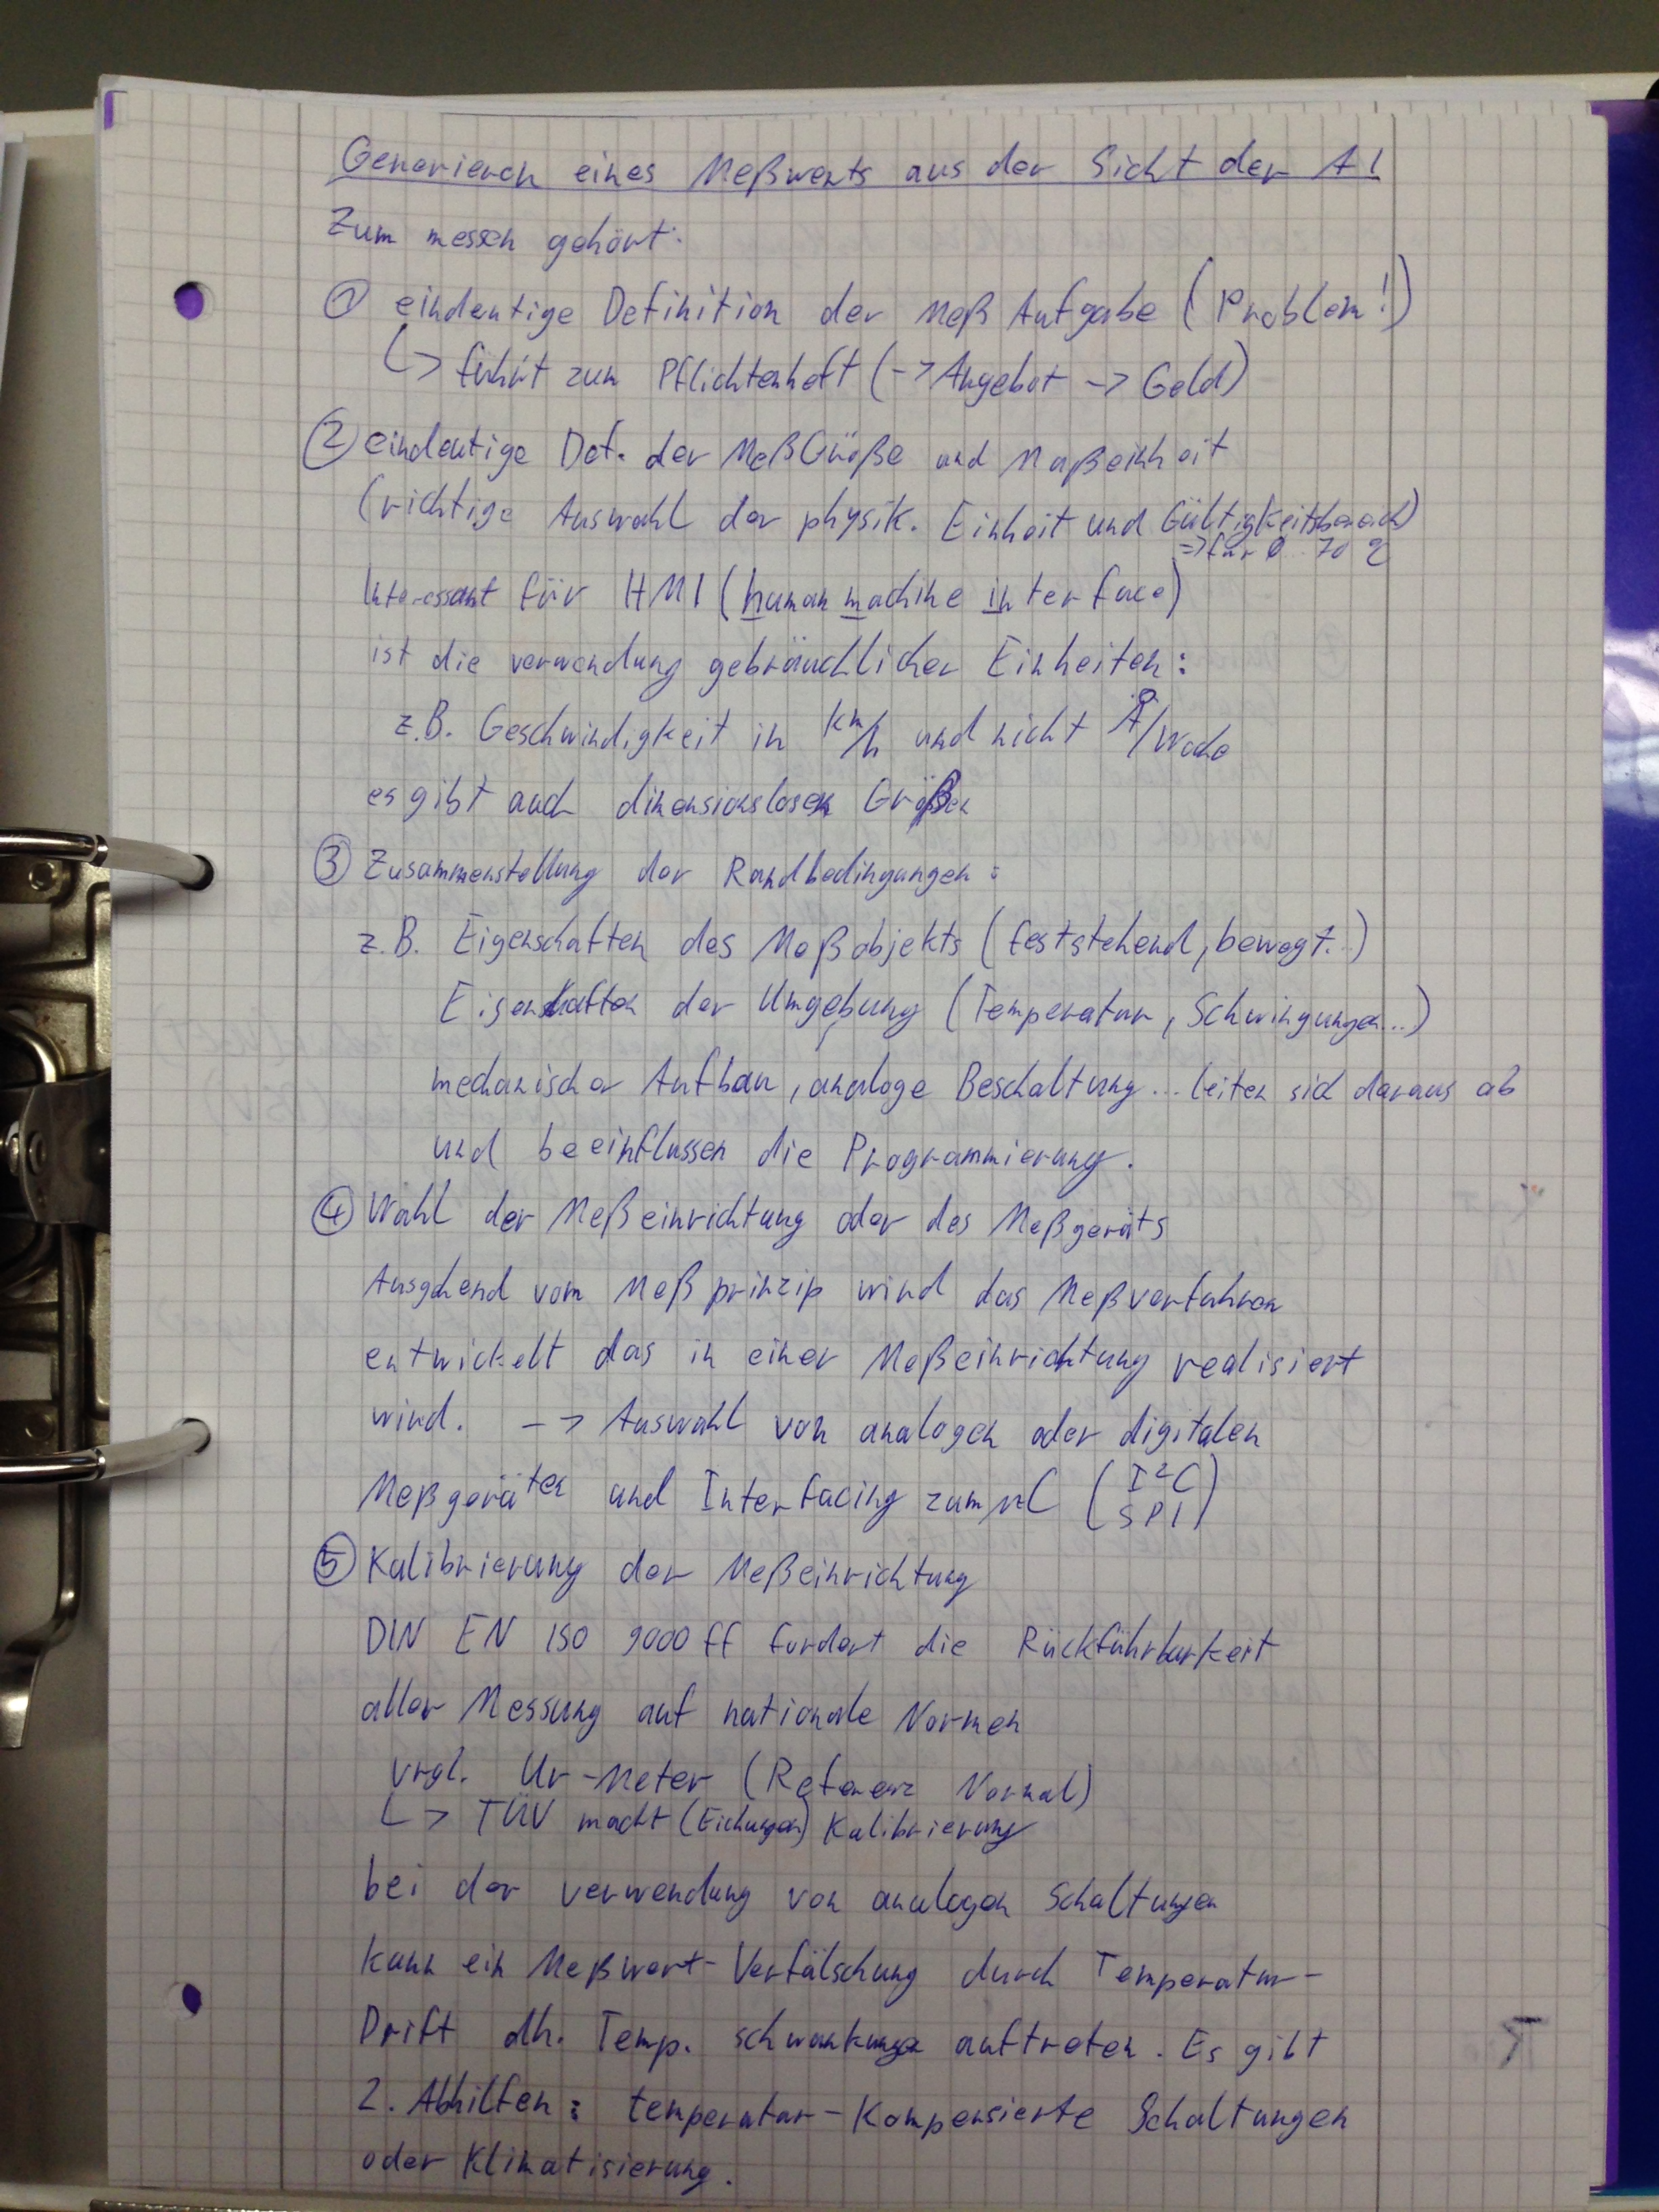 Generieren eines Meßwerts aus der Sicht der AI
Zum messen gehört:
① eindeutige Definition der Meß Aufgabe (Problem!)
↳ führt zum Pflichtenheft (-> Angebot -> Geld)
② eindeutige Def. der MeßGröße und Maßeinheit
(richtige Auswahl der physik. Einheit und Gültigkeitsbereich)
=> für 0 .. 70
Interessant für HMI (human machine interface)
ist die verwendung gebräuchlicher Einheiten:
z.B. Geschwindigkeit in km/h und nicht Å/Woche
es gibt auch dimensionslosen Größen
③ Zusammenstellung der Randbedingungen:
z.B. Eigenschaften des Meßobjekts (feststehend, bewegt..)
Eigenschaften der Umgebung (Temperatur, Schwingungen...)
mechanischer Aufbau, analoge Beschaltung ... leiten sich daraus ab
und beeinflussen die Programmierung.
④ Wahl der Meßeinrichtung oder des Meßgeräts
Ausgehend vom Meßprinzip wird das Meßverfahren
entwickelt das in einer Meßeinrichtung realisiert
wird. --> Auswahl von analogen oder digitalen
Meßgeräten und Interfacing zum µC (I²C
SPI)
⑤ Kalibrierung der Meßeinrichtung
DIN EN ISO 9000 ff fordert die Rückführbarkeit
aller Messung auf nationale Normen
vrgl. Ur-Meter (Referenz Normal)
↳ TÜV macht (Eichungen) Kalibrierung
bei der verwendung von analogen Schaltungen
kann ein Meßwert-Verfälschung durch Temperatur-
Drift dh. Temp. schwankungen auftreten. Es gibt
2. Abhilfen: temperatur-Kompensierte Schaltungen
oder Klimatisierung.